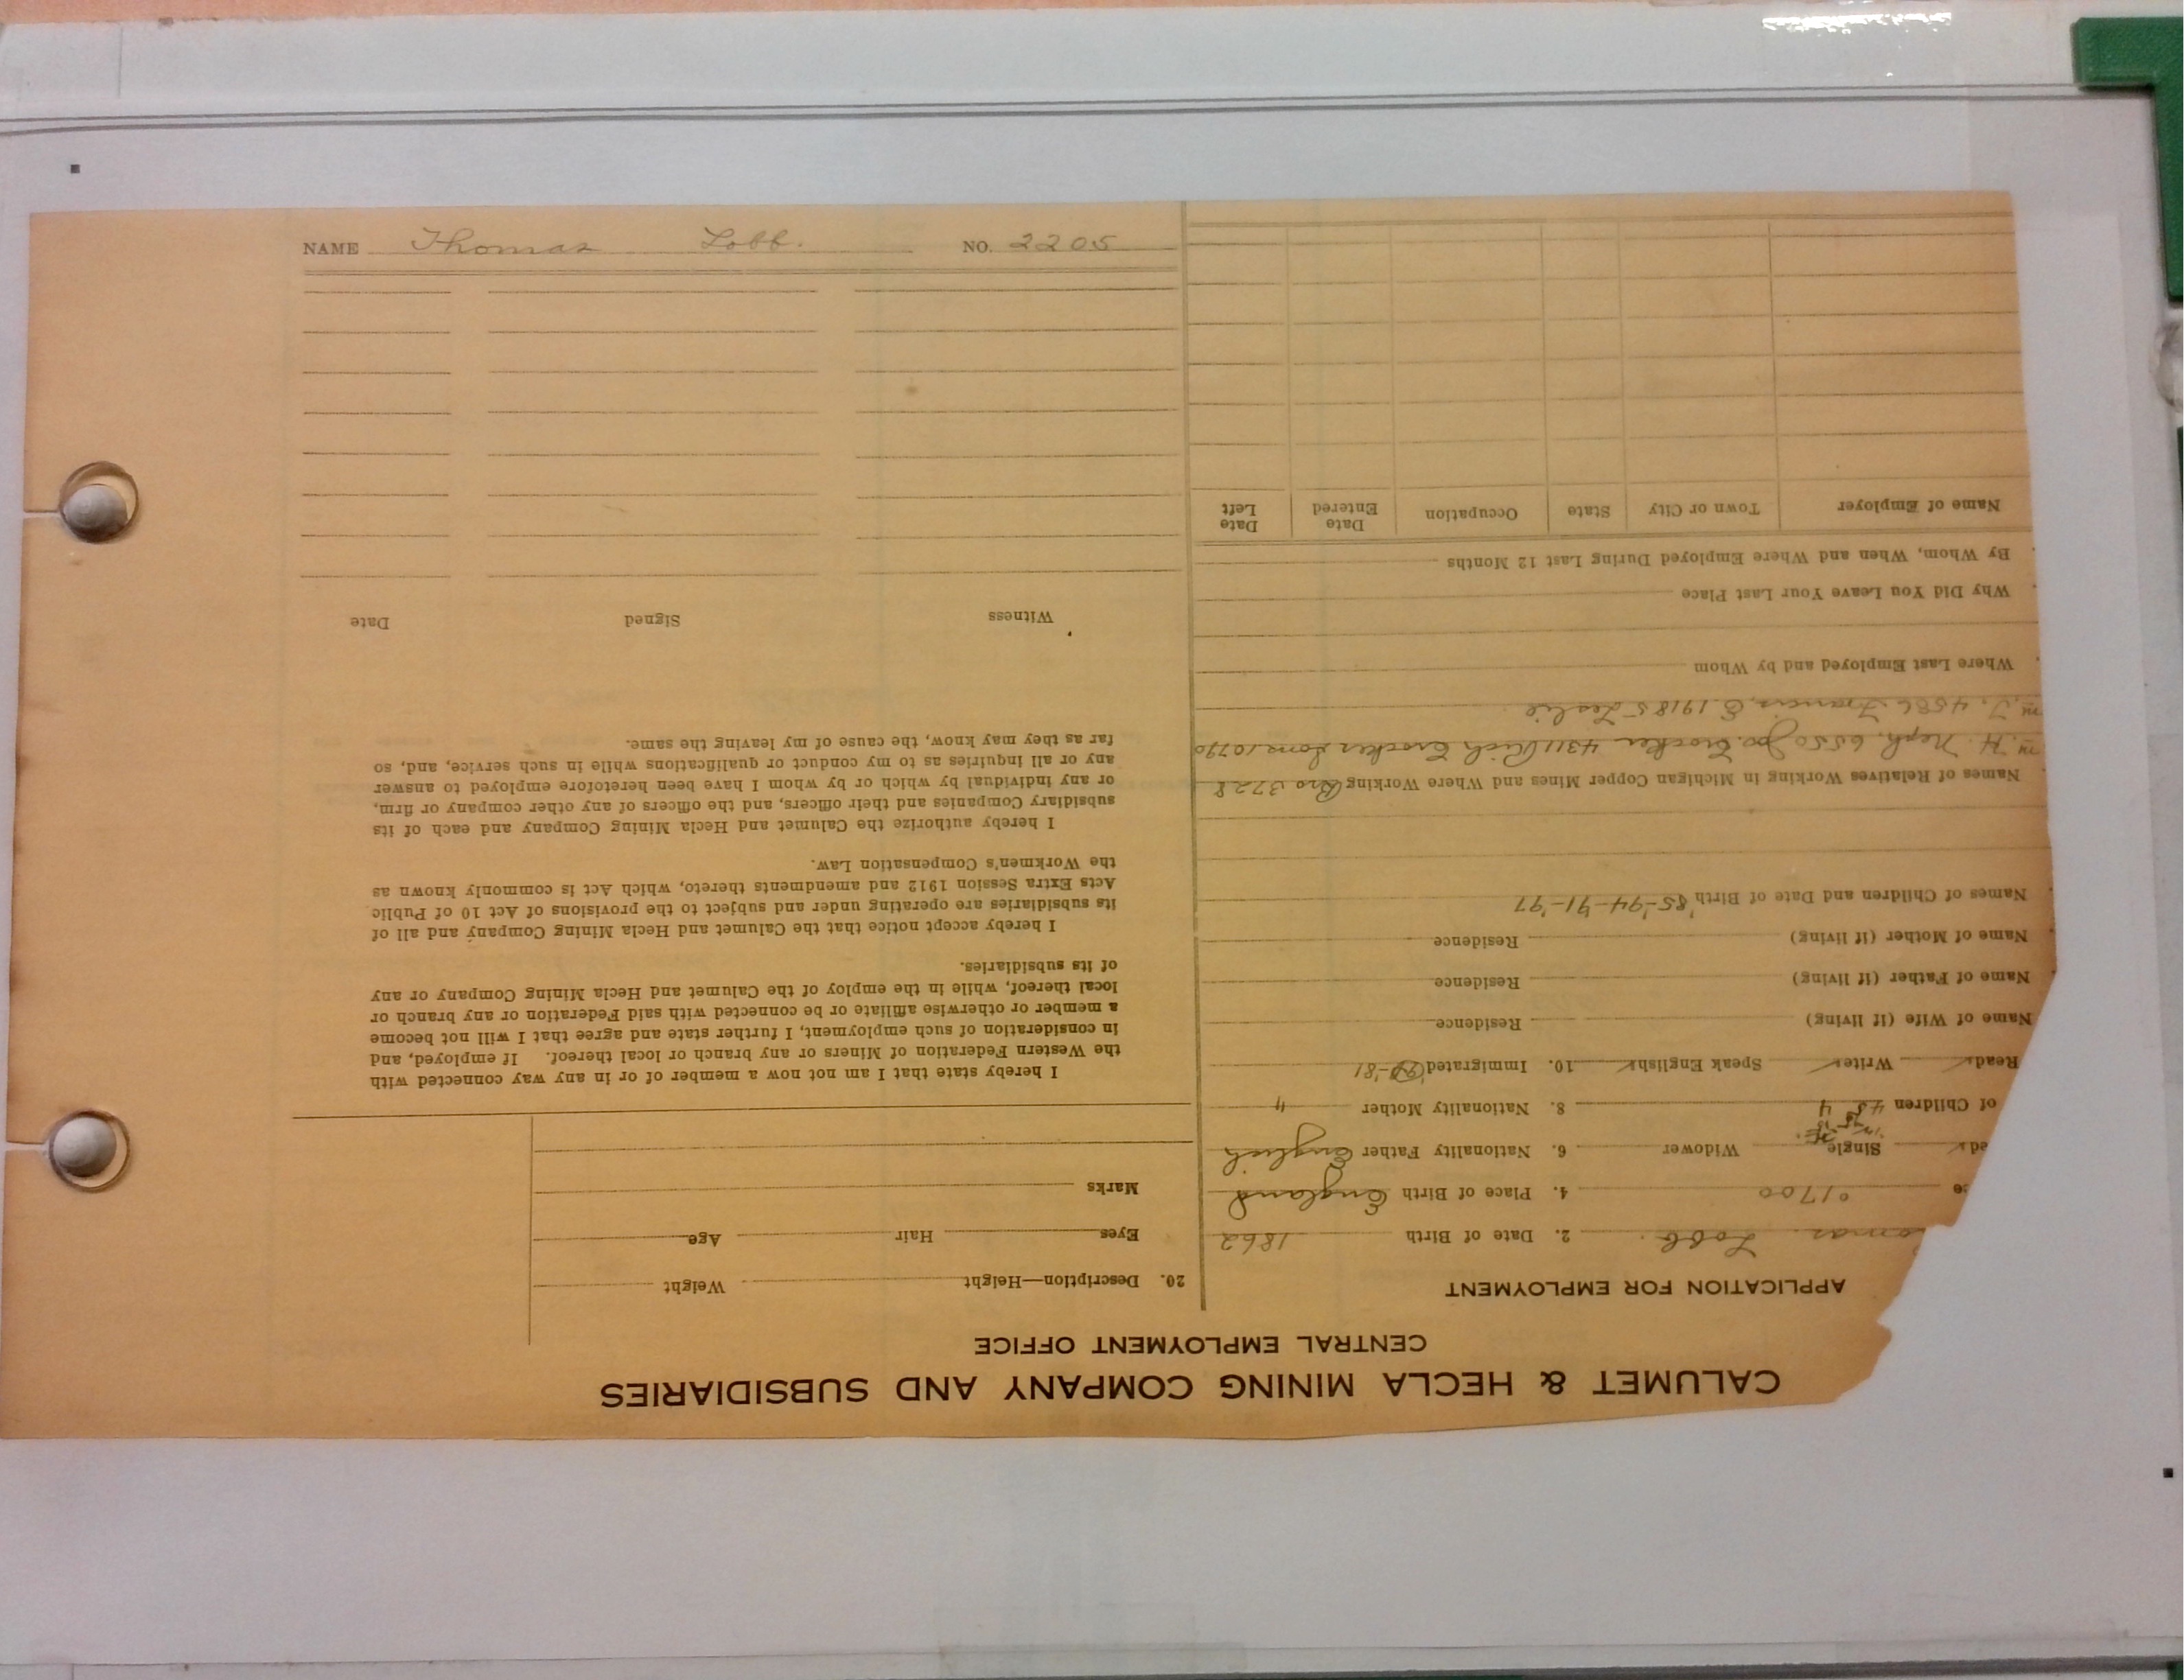 NAME Thomas Lobb. NO. 2205
CALUMET & HECLA MINING COMPANY AND SUBSIDIARIES
CENTRAL EMPLOYMENT OFFICE
APPLICATION FOR EMPLOYMENT
omas Lobb. 2. Date of Birth 1862
ce 01700 4. Place of Birth England
ed Single Widower 6. Nationality Father English
of Children 4 8. Nationality Mother "
Read Write Speak English 10. Immigrated -'81
Name of Wife (if living) Residence
Name of Father (if living) Residence
Name of Mother (if living) Residence
Names of Children and Date of Birth '85-'94-'91-'97
Names of Relatives Working in Michigan Copper Mines and Where Working Bro 3728
m. H. Neph. 6550 Jno. Crocker 4311 Rich Crocker Sons 10790
m. J. 4586 Francis, E. 19185 Leslie
Where Last Employed and by Whom
Why Did You Leave Your Last Place
By Whom, When and Where Employed During Last 12 Months
Name of Employer Town or City State Occupation Date Entered Date Left
20. Description—Height Weight
Eyes Hair Age
Marks
I hereby state that I am not now a member of or in any way connected with
the Western Federation of Miners or any branch or local thereof. If employed, and
in consideration of such employment, I further state and agree that I will not become
a member or otherwise affiliate or be connected with said Federation or any branch or
local thereof, while in the employ of the Calumet and Hecla Mining Company or any
of its subsidiaries.
I hereby accept notice that the Calumet and Hecla Mining Company and all of
its subsidiaries are operating under and subject to the provisions of Act 10 of Public
Acts Extra Session 1912 and amendments thereto, which Act is commonly known as
the Workmen's Compensation Law.
I hereby authorize the Calumet and Hecla Mining Company and each of its
subsidiary Companies and their officers, and the officers of any other company or firm,
or any individual by which or by whom I have been heretofore employed to answer
any or all inquiries as to my conduct or qualifications while in such service, and, so
far as they may know, the cause of my leaving the same.
Witness Signed Date